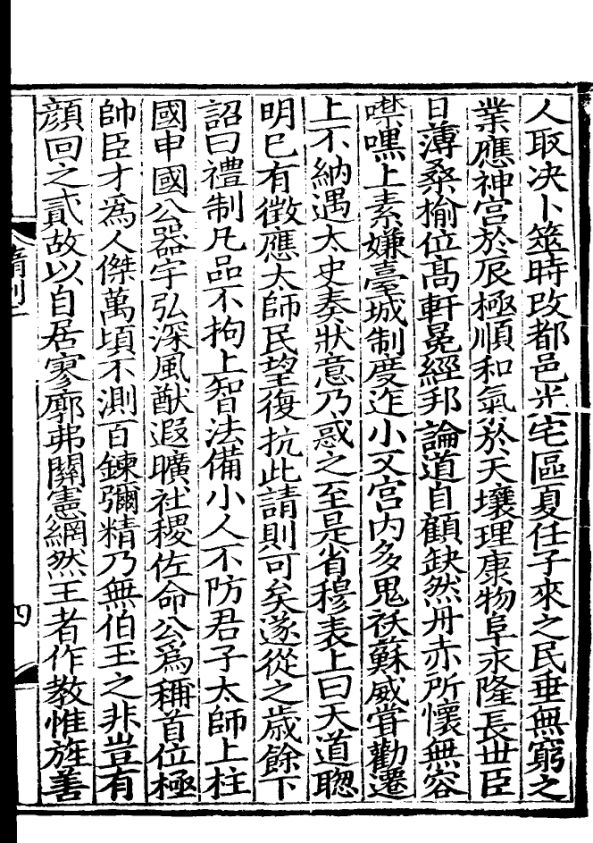 人取决卜筮時改都邑光宅區夏任子來之民垂無窮之
業應神宮於辰極順和氣於天壤理康物阜永隆長世臣
日薄桑榆位髙軒冕經邦論道自顧缺然丹赤所懷無容
噤嘿上素嫌臺城制度迮小又宮内多鬼祅蘇威甞勸遷
上不納遇太史奏狀意乃惑之至是省穆表上曰天道聦
明已有徵應太師民望復抗此請則可矣遂從之歳餘下
詔曰禮制凡品不拘上智法備小人不防君子太師上柱
國申國公器宇弘深風猷遐曠社稷佐命公爲稱首位極
帥臣才爲人傑萬頃不測百鍊彌精乃無伯玉之非豈有
顔回之貳故以自居寥廓弗關憲網然王者作教惟旌善
四